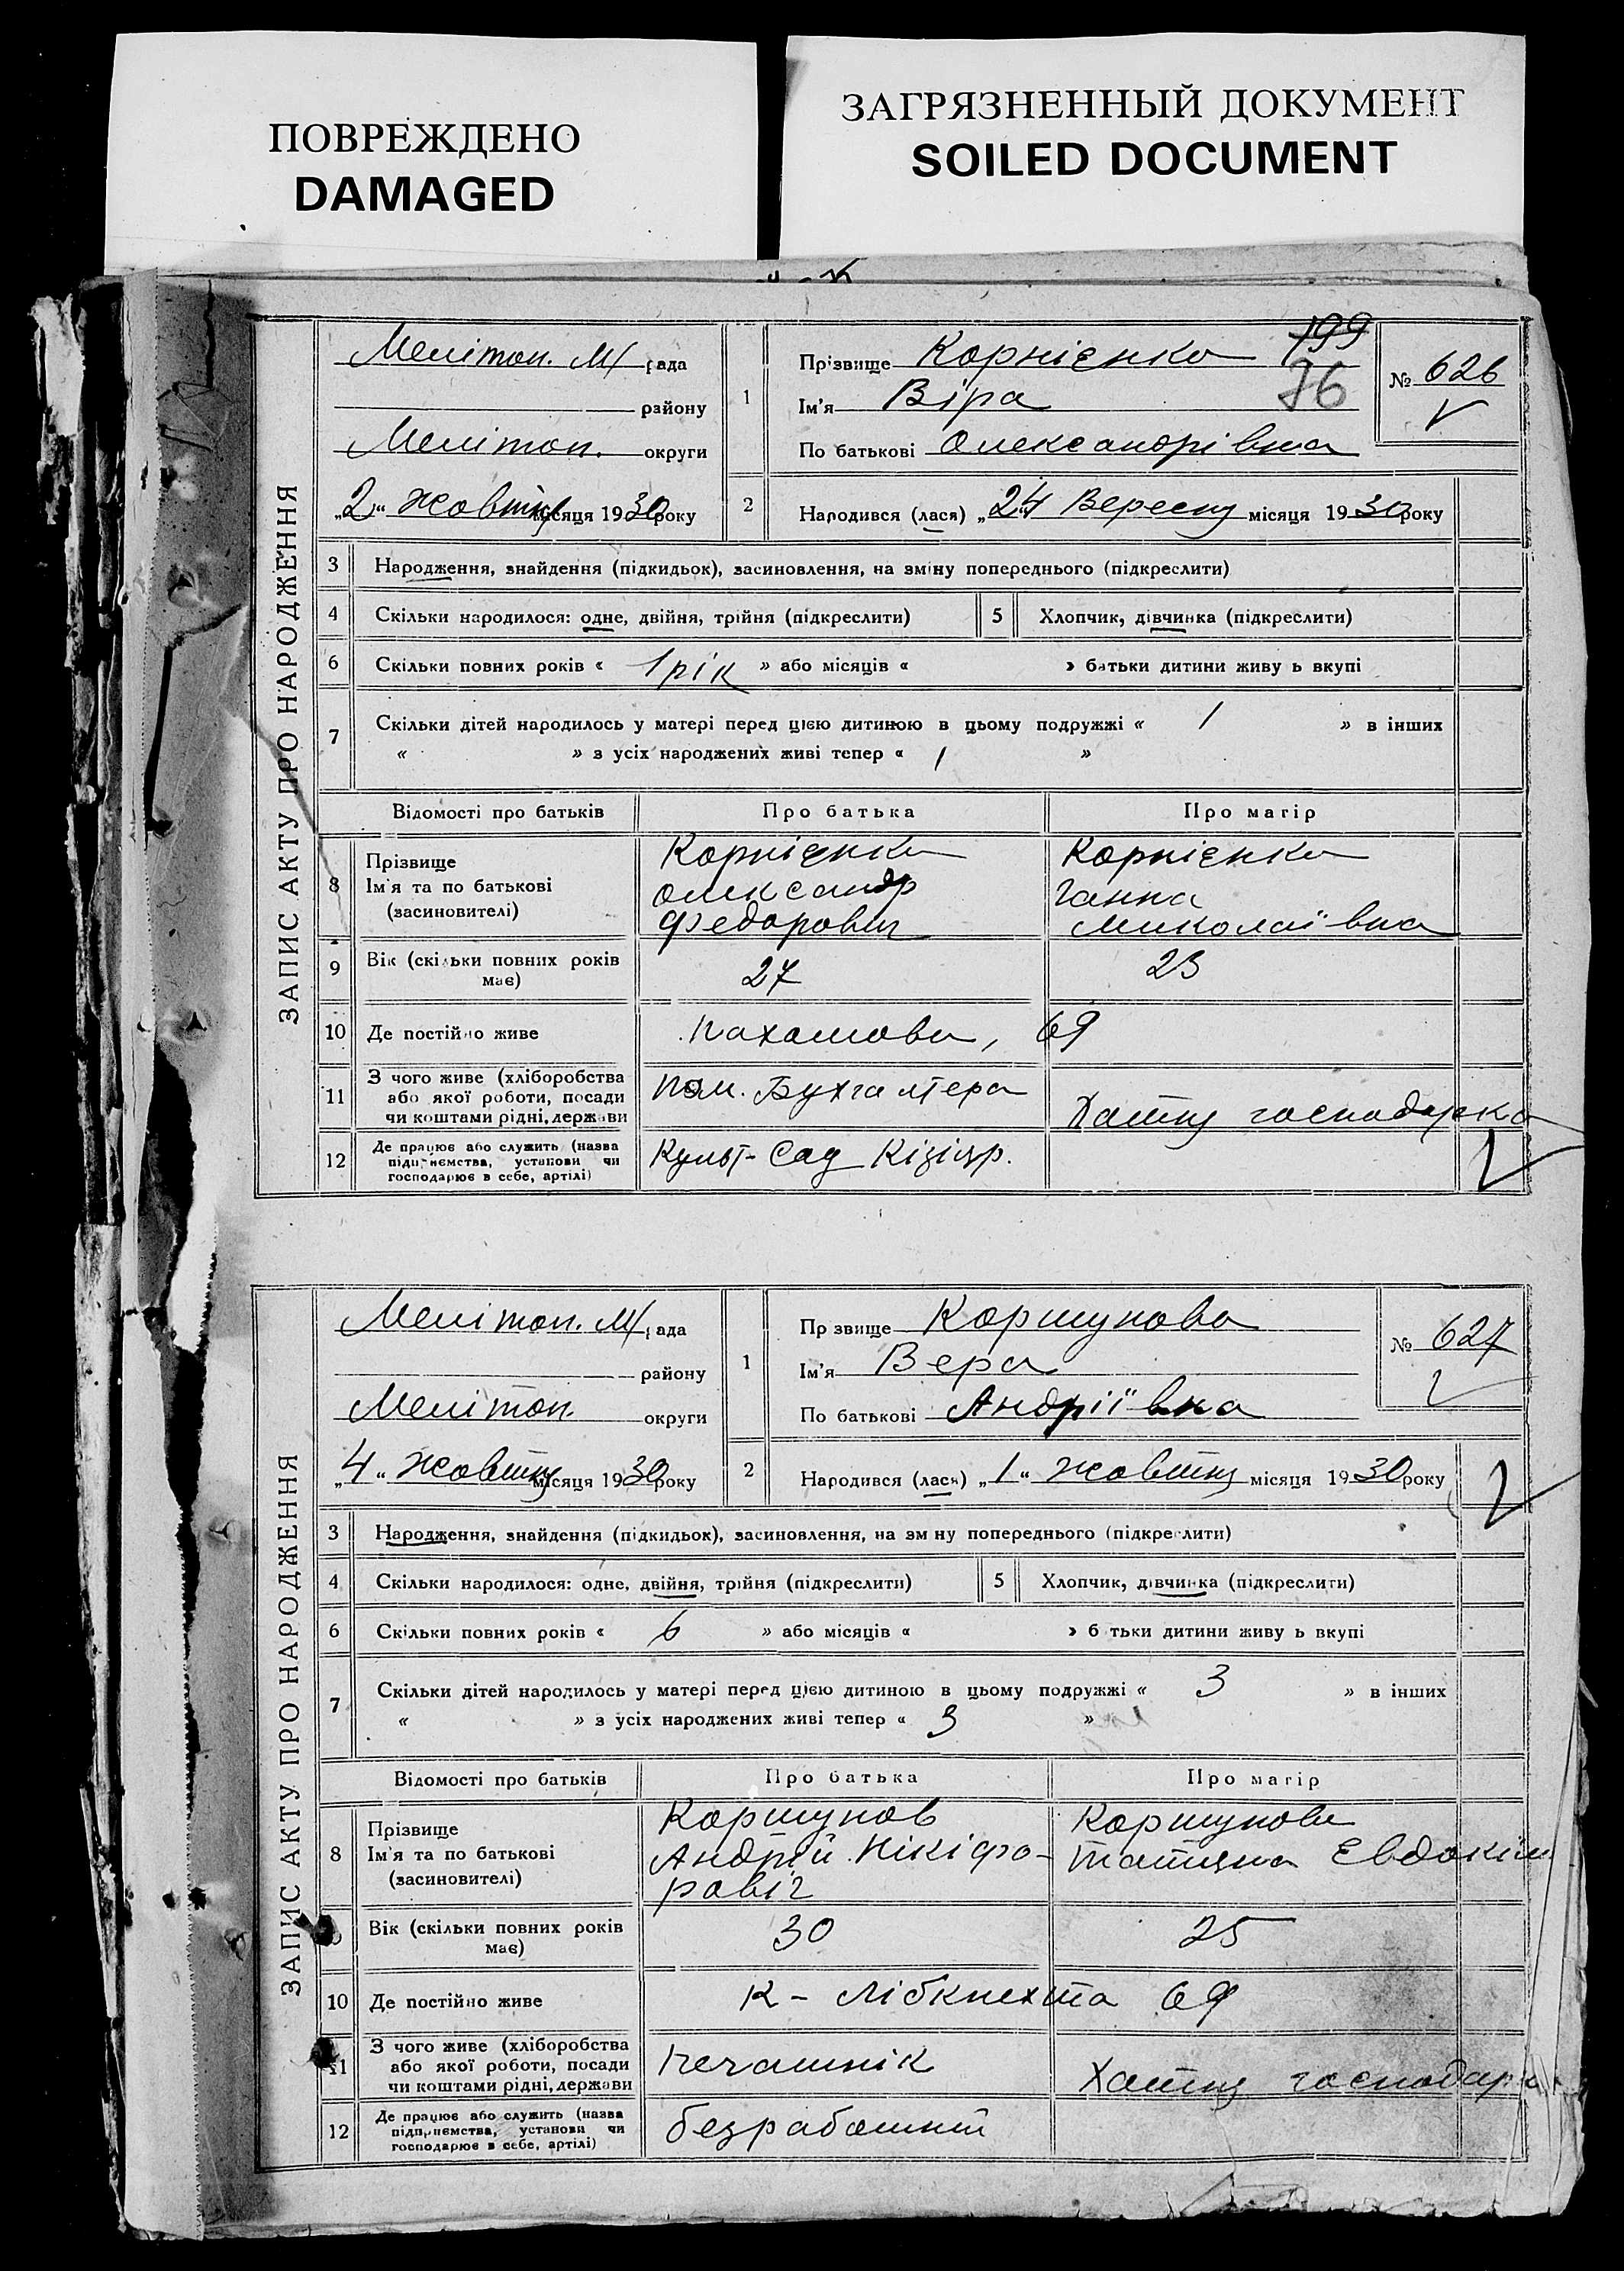 ПОВРЕЖДЕНО
DAMAGED
ЗАГРЯЗНЕННЫЙ ДОКУМЕНТ
SOILED DOCUMENT
ЗАПИС АКТУ ПРО НАРОДЖЕННЯ
Мелітоп. М/рада
району
Мелітоп. округи
„2“ Жовтня місяця 1930 року
1
Прізвище Корнієнко
199
Ім'я Віра
76
По батькові Олександрівна
№ 626
2
Народився (лася) „24“ Вересня місяця 1930 року
3 Народження, знайдення (підкидьок), засиновлення, на зміну попереднього (підкреслити)
4 Скільки народилося: одне, двійня, трійня (підкреслити) 5 Хлопчик, дівчинка (підкреслити)
6 Скільки повних років « 1 рік » або місяців « » батьки дитини живу ь вкупі
7 Скільки дітей народилось у матері перед цією дитиною в цьому подружжі « 1 » в інших
« » з усіх народжених живі тепер « 1 »
Відомості про батьків Про батька Про матір
8 Прізвище Корнієнко Корнієнко
Ім'я та по батькові Олександр Ганна
(засиновителі) Федорович Миколаївна
9 Вік (скільки повних років має) 27 23
10 Де постійно живе Пахомова, 69
11 З чого живе (хліборобства Пом. Бухгалтера
або якої роботи, посади
чи коштами рідні, держави Хатня господарка
12 Де працює або служить (назва Культ-Сад
підприємства, установи чи
господарює в себе, артілі)
ЗАПИС АКТУ ПРО НАРОДЖЕННЯ
Мелітоп. М/рада
району
Мелітоп. округи
„4“ Жовтня місяця 1930 року
1
Пр звище Коршунова
Ім'я Вера
По батькові Андріївна
№ 627
2
Народився (лася) „1“ Жовтня місяця 1930 року
3 Народження, знайдення (підкидьок), засиновлення, на зм ну попереднього (підкреслити)
4 Скільки народилося: одне, двійня, трійня (підкреслити) 5 Хлопчик, дівчинка (підкреслити)
6 Скільки повних років « 6 » або місяців « » б тьки дитини живу ь вкупі
7 Скільки дітей народилось у матері перед цією дитиною в цьому подружжі « 3 » в інших
« » з усіх народжених живі тепер « 3 »
Відомості про батьків Про батька Про матір
8 Прізвище Коршунов Коршунова
Ім'я та по батькові Андрій Нікіфо- Татяна Евдокім
(засиновителі) ровіч
Вік (скільки повних років має) 30 25
10 Де постійно живе К-Лібкнехта 69
11 З чого живе (хліборобства Печатнік
або якої роботи, посади
чи коштами рідні, держави Хатня господарка
12 Де працює або служить (назва безработний
підприємства, установи чи
господарює в себе, артілі)